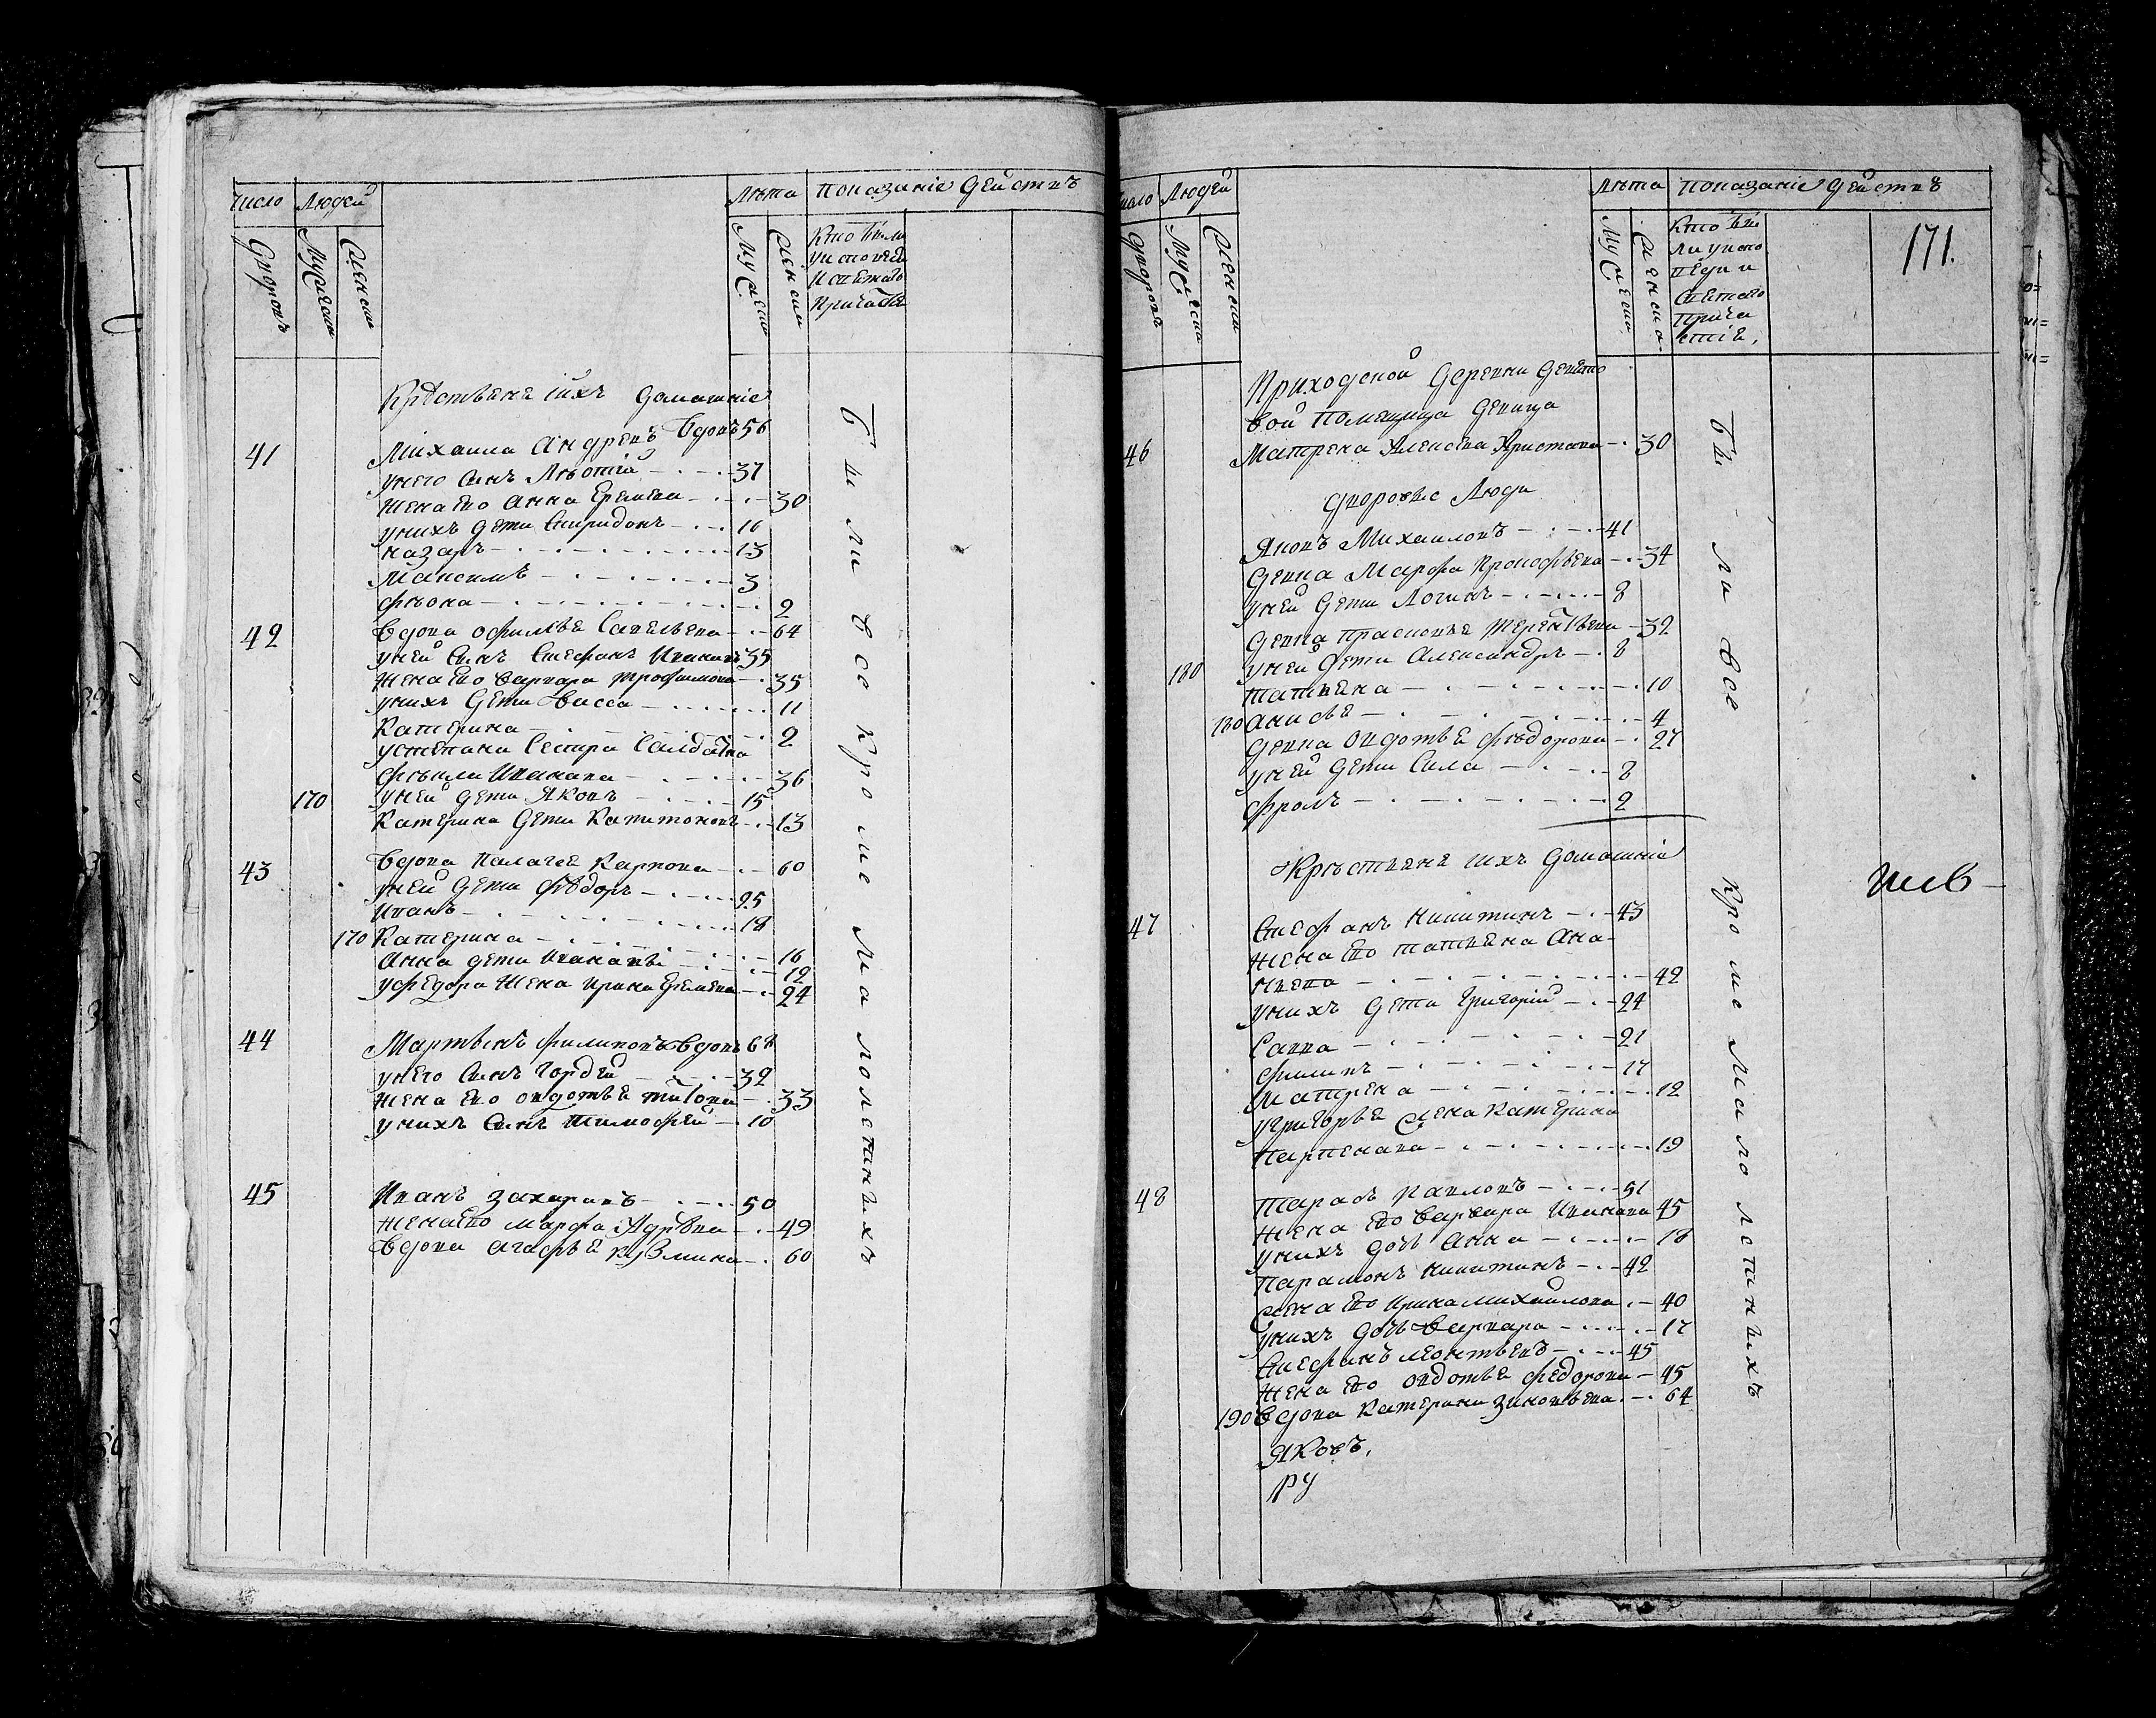 Число Людей
Лѣта показание действъ
Дворовъ
Мужеска
Женска
Мужеска
Женска
Кто были
у исповѣди
и святаго
причастїя
Крестьяне ихъ домашние
41 Михаила Андреевъ вдовъ 56
у него сынъ Леонтїй 37
жена его Анна Еремеева 30
у нихъ дети Спиридонъ 16
Назаръ 13
Максимъ 3
Фіона 2
42 Вдова Офимья Савельева 64
у ней сынъ Стефанъ Ивановъ 35
жена его Варвара Трофимова 35
у нихъ дети Васса 11
Катерина 2
у Степана сестра салдатка
Фекла Иванова 36
170 у ней дети Яковъ 15
Катерина дети Капитоновы 13
43 Вдова Палагея Карпова 60
у ней дети Федоръ 25
Иванъ 18
170 Катерина 16
Анна дети Ивановы 12
у Федора жена Ирина Еремеева 24
44 Мартынъ Филиповъ вдовъ 68
у него сынъ Гордей 32
жена его Овдотья Титова 33
у нихъ сынъ Тимофей 10
45 Иванъ Захаровъ 50
жена его Марфа Андреева 49
Вдова Агафья Кузмина 60
Были все кроме малолетнихъ
Число Людей
Лѣта показание действъ
Дворовъ
Мужеска
Женска
Мужеска
Женска
Кто бы
ли у испо
веди и
святаго
прича
стїя,
171.
Приходской деревни
вой помещица девица
46 Матрена Алексева 30
дворовые люди
Яковъ Михаиловъ 41
девка Марфа Прокофьева 34
у ней дети Логинъ 8
девка Прасковья Терентьева 32
180 у ней дети Александръ 8
Татьяна 10
180 Анисья 4
девка Овдотья Федорова 27
у ней дети Сила 8
Фролъ 2
Крестьяне ихъ домашние
47 Стефанъ Никитинъ 43
жена его Татьяна Ана-
ньева 42
у нихъ дети Григорий 24
Савва 21
Филипъ 17
Матрена 12
у Григорья жена Катерина
Парменова 19
48 Тарасъ Павловъ 51
жена его Варвара Иванова 45
у нихъ дочь Анна 18
Парамонъ Никитинъ 42
жена его Ирина Михаилова 40
у нихъ дочь Варвара 17
Стефанъ Леонтьевъ 45
жена его Овдотья Федорова 45
190 Вдова Катерина Зиновьева 64
Яковъ,
ру
Бы-ли все кроме малолетнихъ